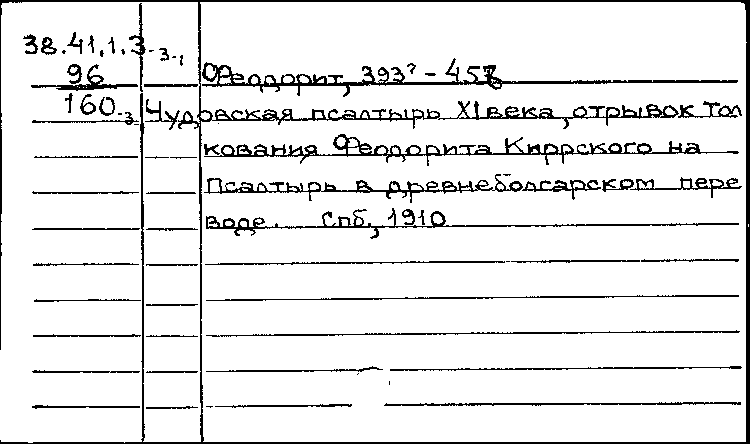 38.41.1.3-3-1
96 Феодорит, 393? - 457
160-3 Чудовская псалтырь XI века, отрывок Тол
кования Феодорита Киррского на
Псалтырь в древнеболгарском пере
воде. Спб., 1910